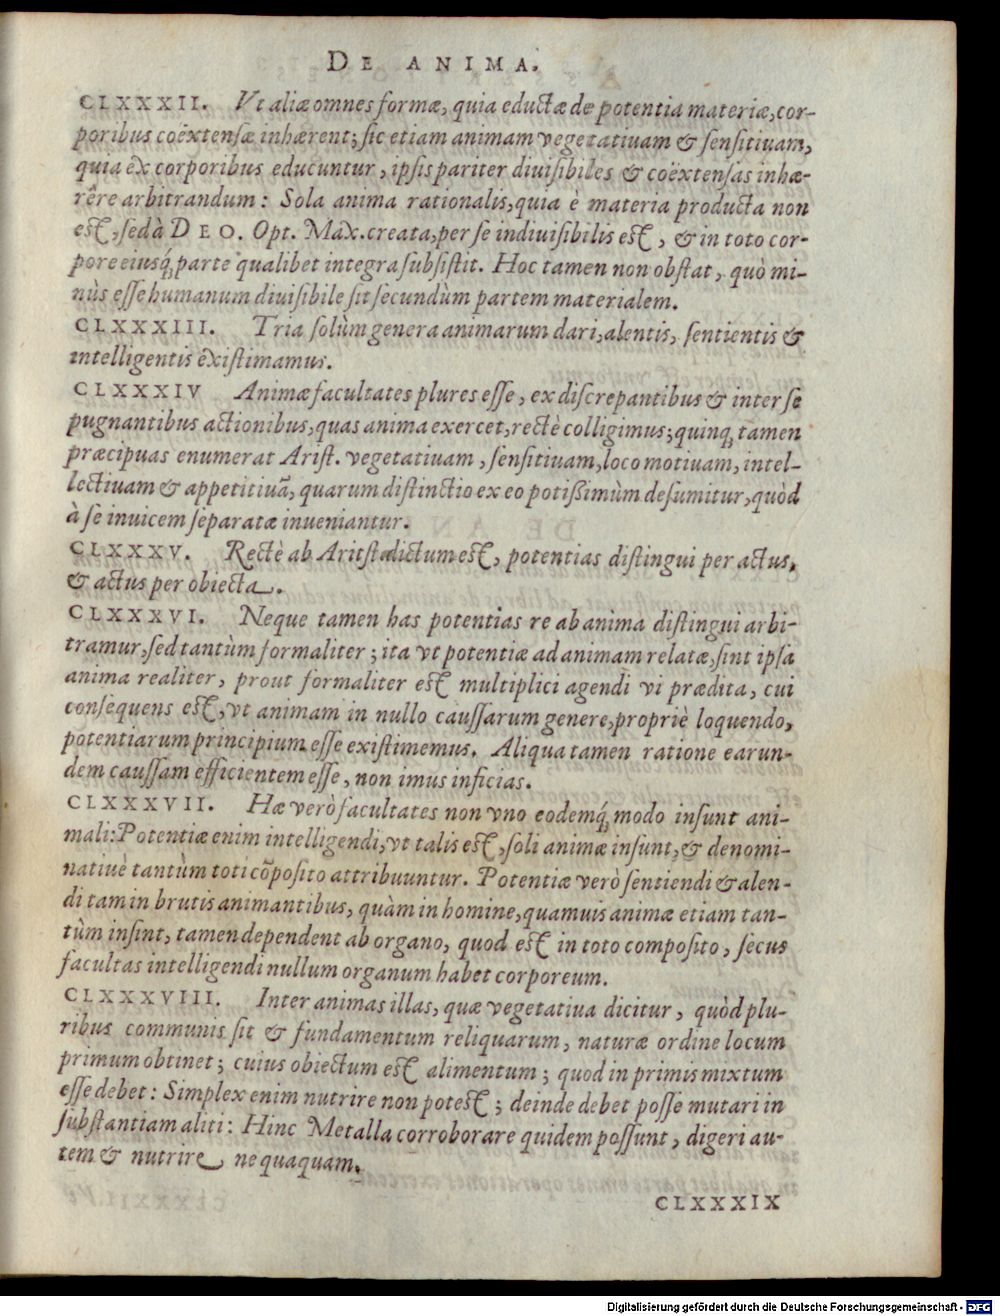 DE ANIMA.
CLXXXII. Vt aliæ omnes formæ, quia eductæ de potentia materiæ, cor-
poribus coëxtensæ inhærent; sic etiam animam vegetatiuam & sensitiuam,
quia ex corporibus educuntur, ipsis pariter diuisibiles & coëxtensas inhæ-
rere arbitrandum: Sola anima rationalis, quia è materia producta non
est, sed à DEO. Opt. Max. creata, per se indiuisibilis est, & in toto cor-
pore eiusq́; parte qualibet integra subsistit. Hoc tamen non obstat, quò mi-
nùs esse humanum diuisibile sit secundùm partem materialem.
CLXXXIII. Tria solùm genera animarum dari, alentis, sentientis &
intelligentis existimamus.
CLXXXIV Animæ facultates plures esse, ex discrepantibus & inter se
pugnantibus actionibus, quas anima exercet, rectè colligimus; quinq; tamen
præcipuas enumerat Arist. vegetatiuam, sensitiuam, loco motiuam, intel-
lectiuam & appetitiuã, quarum distinctio ex eo potißimùm desumitur, quòd
à se inuicem separatæ inueniantur.
CLXXXV. Rectè ab Aritst. dictum est, potentias distingui per actus,
& actus per obiecta.
CLXXXVI. Neque tamen has potentias re ab anima distingui arbi-
tramur, sed tantùm formaliter; ita vt potentiæ ad animam relatæ, sint ipsa
anima realiter, prout formaliter est multiplici agendi vi prædita, cui
consequens est, vt animam in nullo caussarum genere, propriè loquendo,
potentiarum principium esse existimemus. Aliqua tamen ratione earun-
dem caussam efficientem esse, non imus inficias.
CLXXXVII. Hæ verò facultates non vno eodemq́; modo insunt ani-
mali: Potentiæ enim intelligendi, vt talis est, soli animæ insunt, & denomi-
natiuè tantùm toti cõposito attribuuntur. Potentiæ verò sentiendi & alen-
di tam in brutis animantibus, quàm in homine, quamuis animæ etiam tan-
tùm insint, tamen dependent ab organo, quod est in toto composito, secus
facultas intelligendi nullum organum habet corporeum.
CLXXXVIII. Inter animas illas, quæ vegetatiua dicitur, quòd plu-
ribus communis sit & fundamentum reliquarum, naturæ ordine locum
primum obtinet; cuius obiectum est alimentum; quod in primis mixtum
esse debet: Simplex enim nutrire non potest; deinde debet posse mutari in
substantiam aliti: Hinc Metalla corroborare quidem possunt, digeri au-
tem & nutrire nequaquam.
CLXXXIX
Digitalisierung gefördert durch die Deutsche Forschungsgemeinschaft - DFG